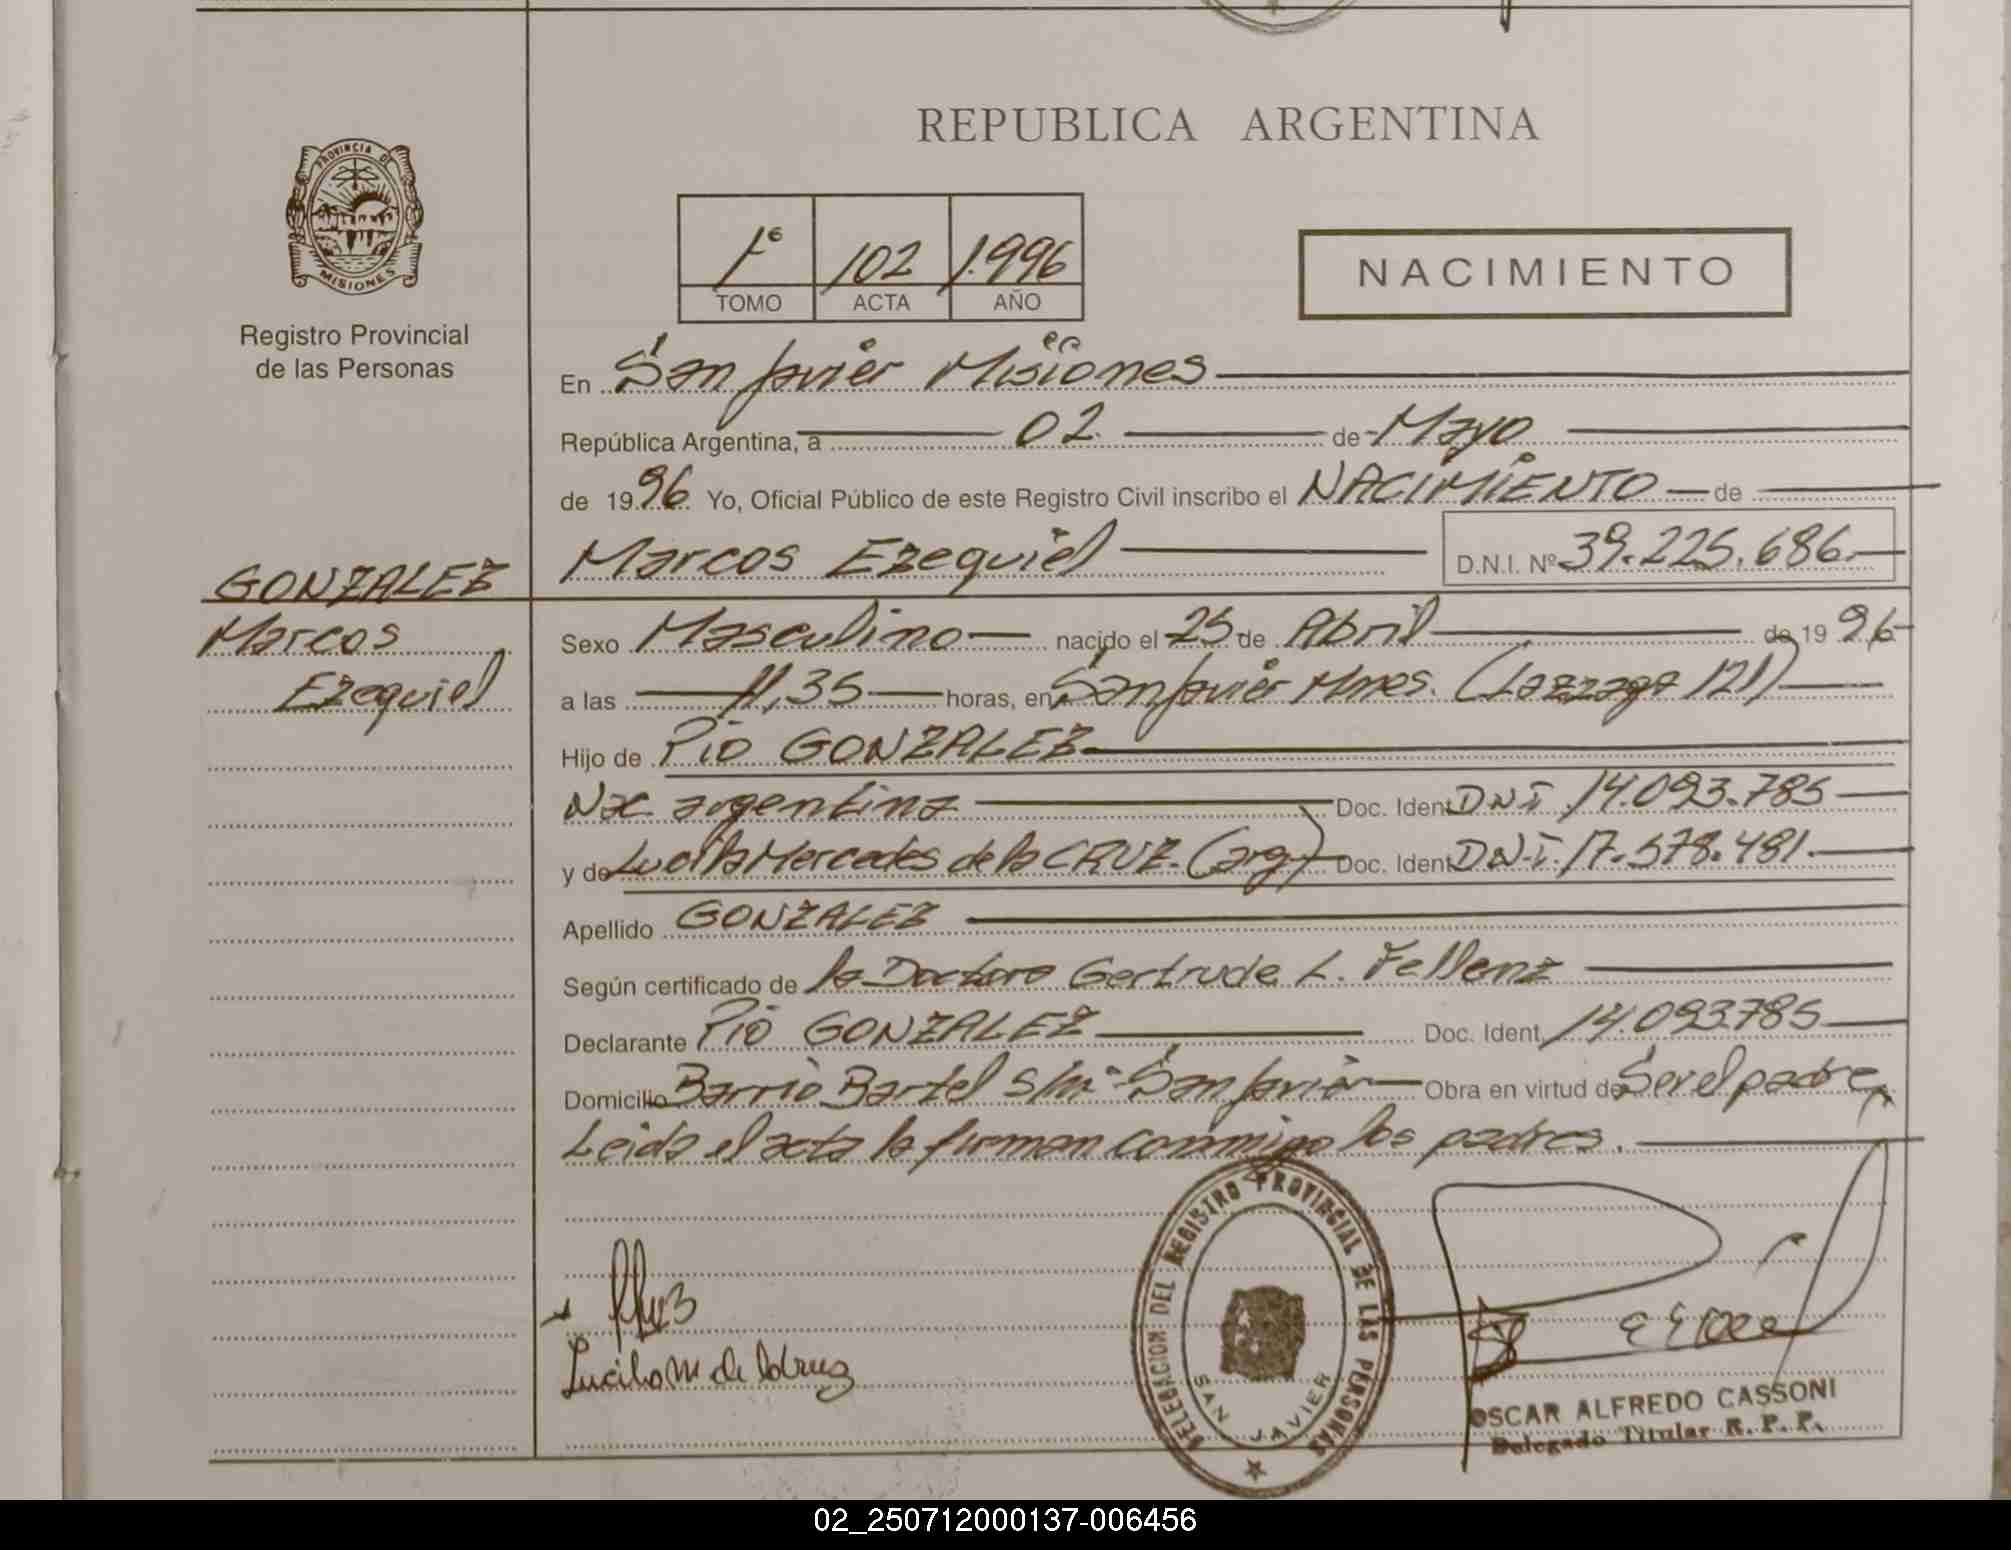 REPUBLICA ARGENTINA
PROVINCIA DE
MISIONES
Registro Provincial
de las Personas
1º 102 1.996
TOMO ACTA AÑO
NACIMIENTO
En San Javier Misiones
República Argentina, a 02 de Mayo
de 1996 Yo, Oficial Público de este Registro Civil inscribo el NACIMIENTO de
Marcos Ezequiel D.N.I. Nº 39.225.686
GONZALEZ
Marcos
Ezequiel
Sexo Masculino nacido el 25 de Abril de 1996
a las 11,35 horas, en San Javier Mnes. (Lazzaga 121)
Hijo de Pio GONZALEZ
Nac. argentina Doc. Ident. D.N.I. 14.093.785
y de Lucila Mercedes de la CRUZ. (arg.) Doc. Ident. D.N.I. 17.578.481.
Apellido GONZALEZ
Según certificado de la Doctora Gertrude L. Fellenz
Declarante Pio GONZALEZ Doc. Ident. 14.093785
Domicilio Barrio Bartel S/nº San Javier Obra en virtud de Ser el padre
Leida el acta la firman conmigo los padres.
DELEGACION DEL REGISTRO PROVINCIAL DE LAS PERSONAS
SAN JAVIER
Lucila M de la Cruz
OSCAR ALFREDO CASSONI
Delegado Titular R. P. P.
02_250712000137-006456